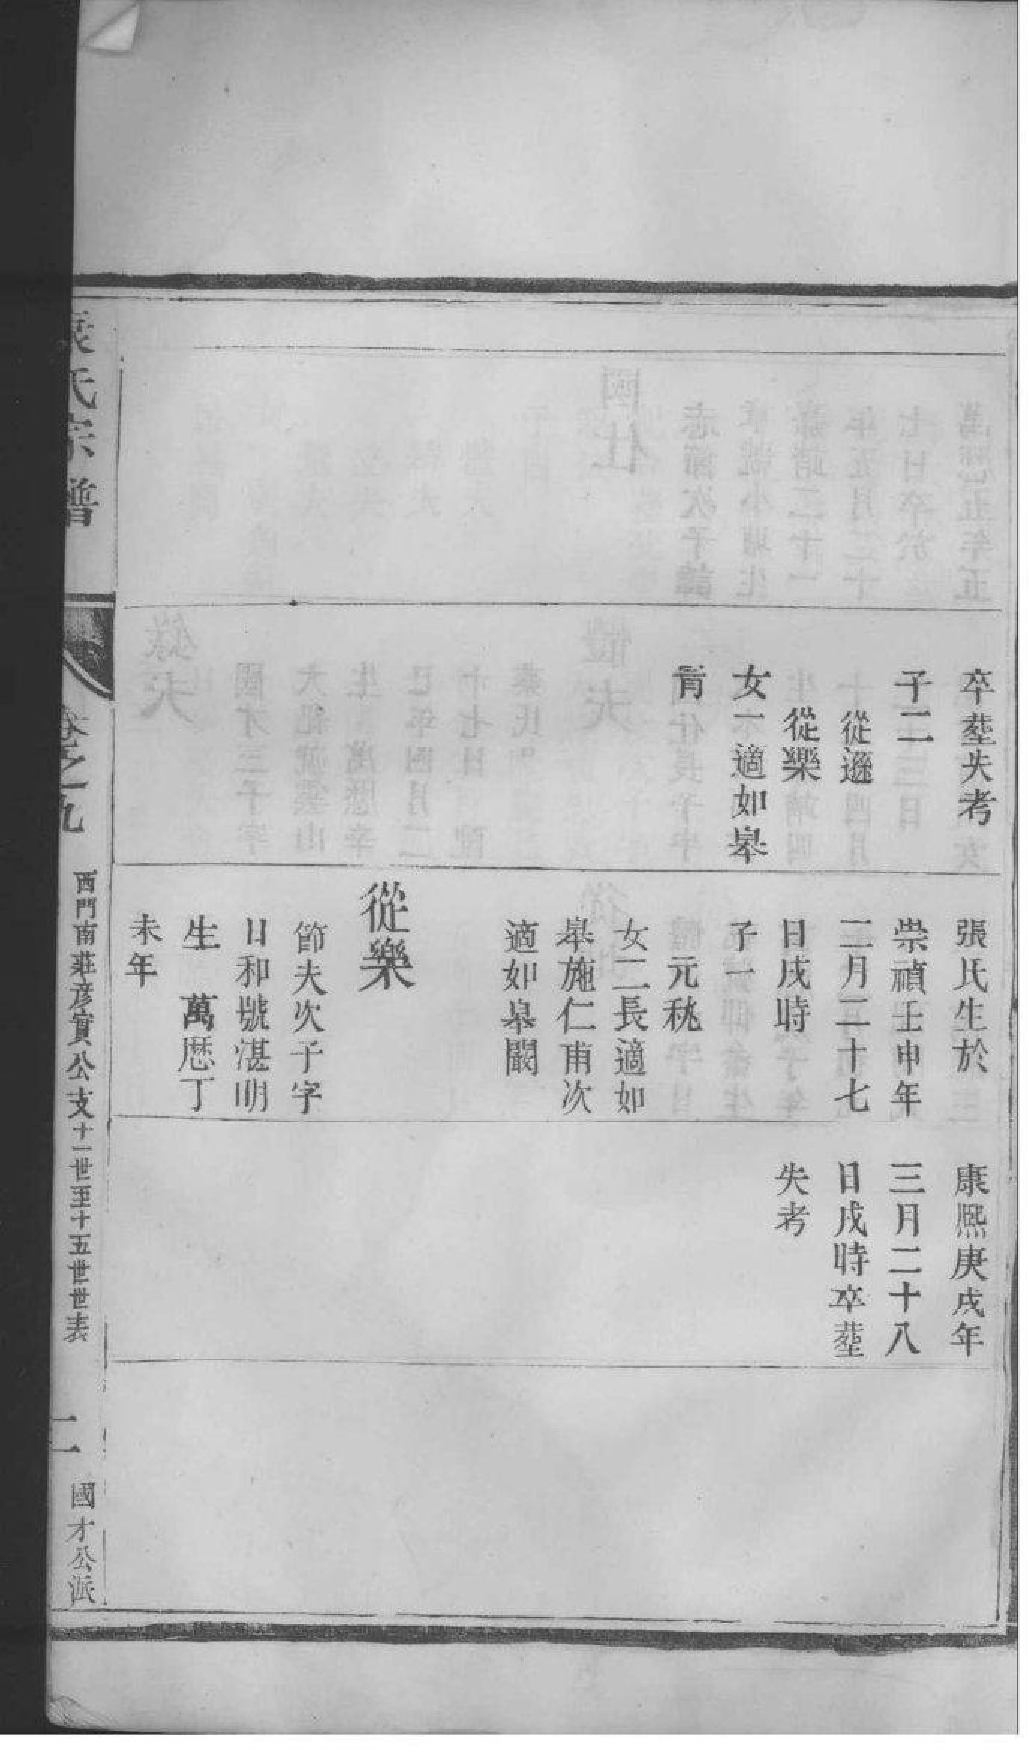 卒塟失考
子二
從遜
從樂
女一適如皋
張氏生於
崇禎壬申年
二月二十七
日戌時
子一
元秋
女二長適如
皋施仁甫次
適如皋闞
從樂
節夫次子字
日和號湛明
生 萬厯丁
未年
康熙庚戌年
三月二十八
日戌時卒塟
失考
氏宗譜
卷之九
西門南莊彦實公支十一世至十五世世表
二
國才公派